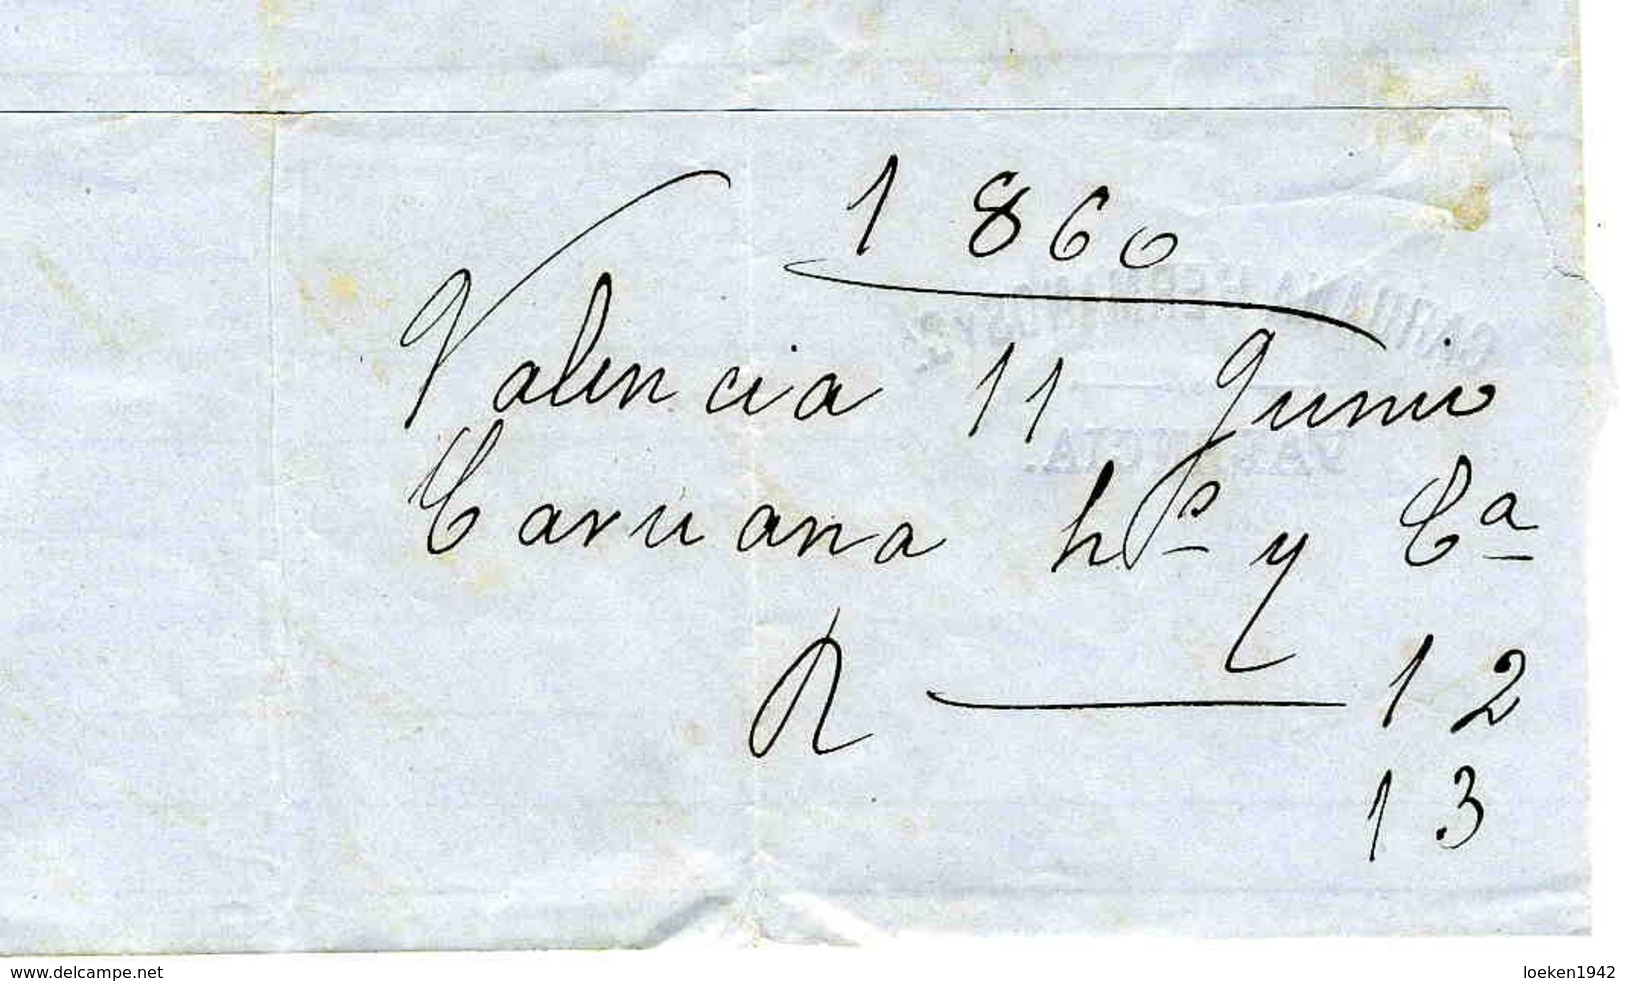 1860
Valencia 11 Junio
Caruana hs y Ca
R 12
13
CARUANA HERMANOS Y Ca
VALENCIA.
www.delcampe.net
loeken1942